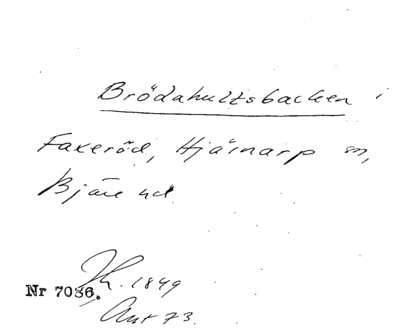 Brödahultsbacken i
Faxeröd, Hjärnarp sn,
Bjäre hd
Jh. 1849
Nr 7036.
Ant 73.